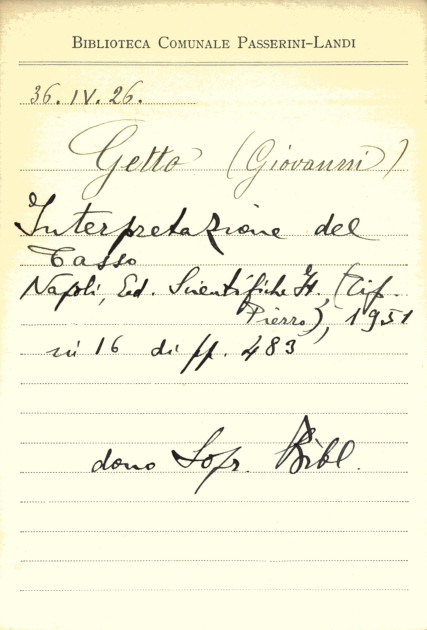 BIBLIOTECA COMUNALE PASSERINI-LANDI
36. IV. 26.
Getto (Giovanni)
Interpretazione del
Tasso
Napoli, Ed. Scientifiche It. (Tip.
Pierro), 1951
in 16 di pp. 483
dono Sopr. Bibl.